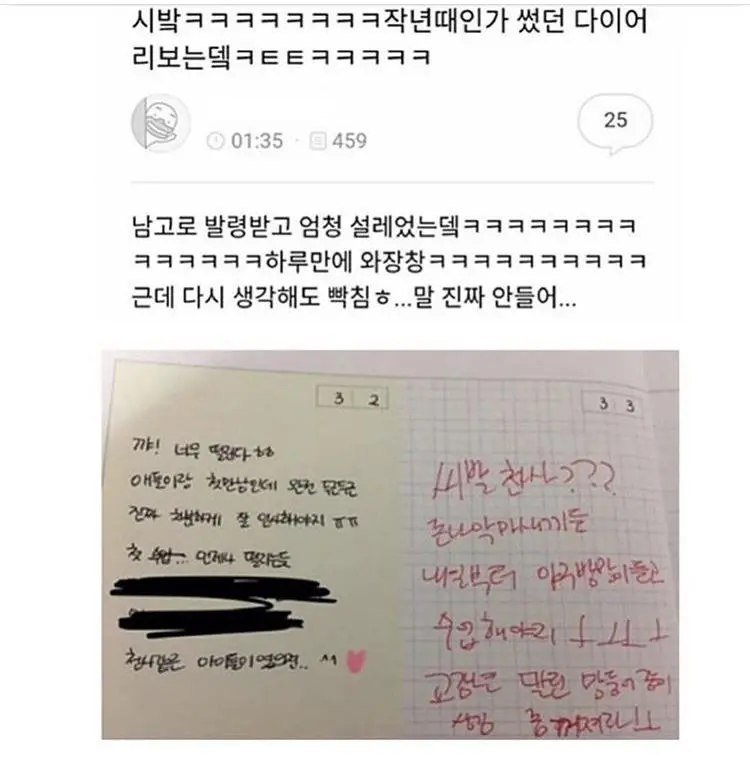 시밬ㅋㅋㅋㅋㅋㅋㅋㅋㅋ작년때인가 썼던 다이어
리보는뎈ㅋㅌㅌㅋㅋㅋㅋㅋ
01:35 · 459
25
남고로 발령받고 엄청 설레었는뎈ㅋㅋㅋㅋㅋㅋㅋㅋ
ㅋㅋㅋㅋㅋㅋ하루만에 와장창ㅋㅋㅋㅋㅋㅋㅋㅋㅋㅋ
근데 다시 생각해도 빡침ㅎ...말 진짜 안들어...
3 2
꺄! 너무 떨린다 ㅎㅎ
애들이랑 첫만남인데 완전 두근두근
진짜 차분하게 잘 인사해야지 ㅠㅠ
첫 수업... 언제나 떨리는듯
천사같은 아이들이었으면.. ^^
3 3
씨발 천사???
존나 악마새끼들
내일부터 야구방망이들고
수업해야리ㅗㅜㅜㅗ
교정은 말린 망둥어 종이